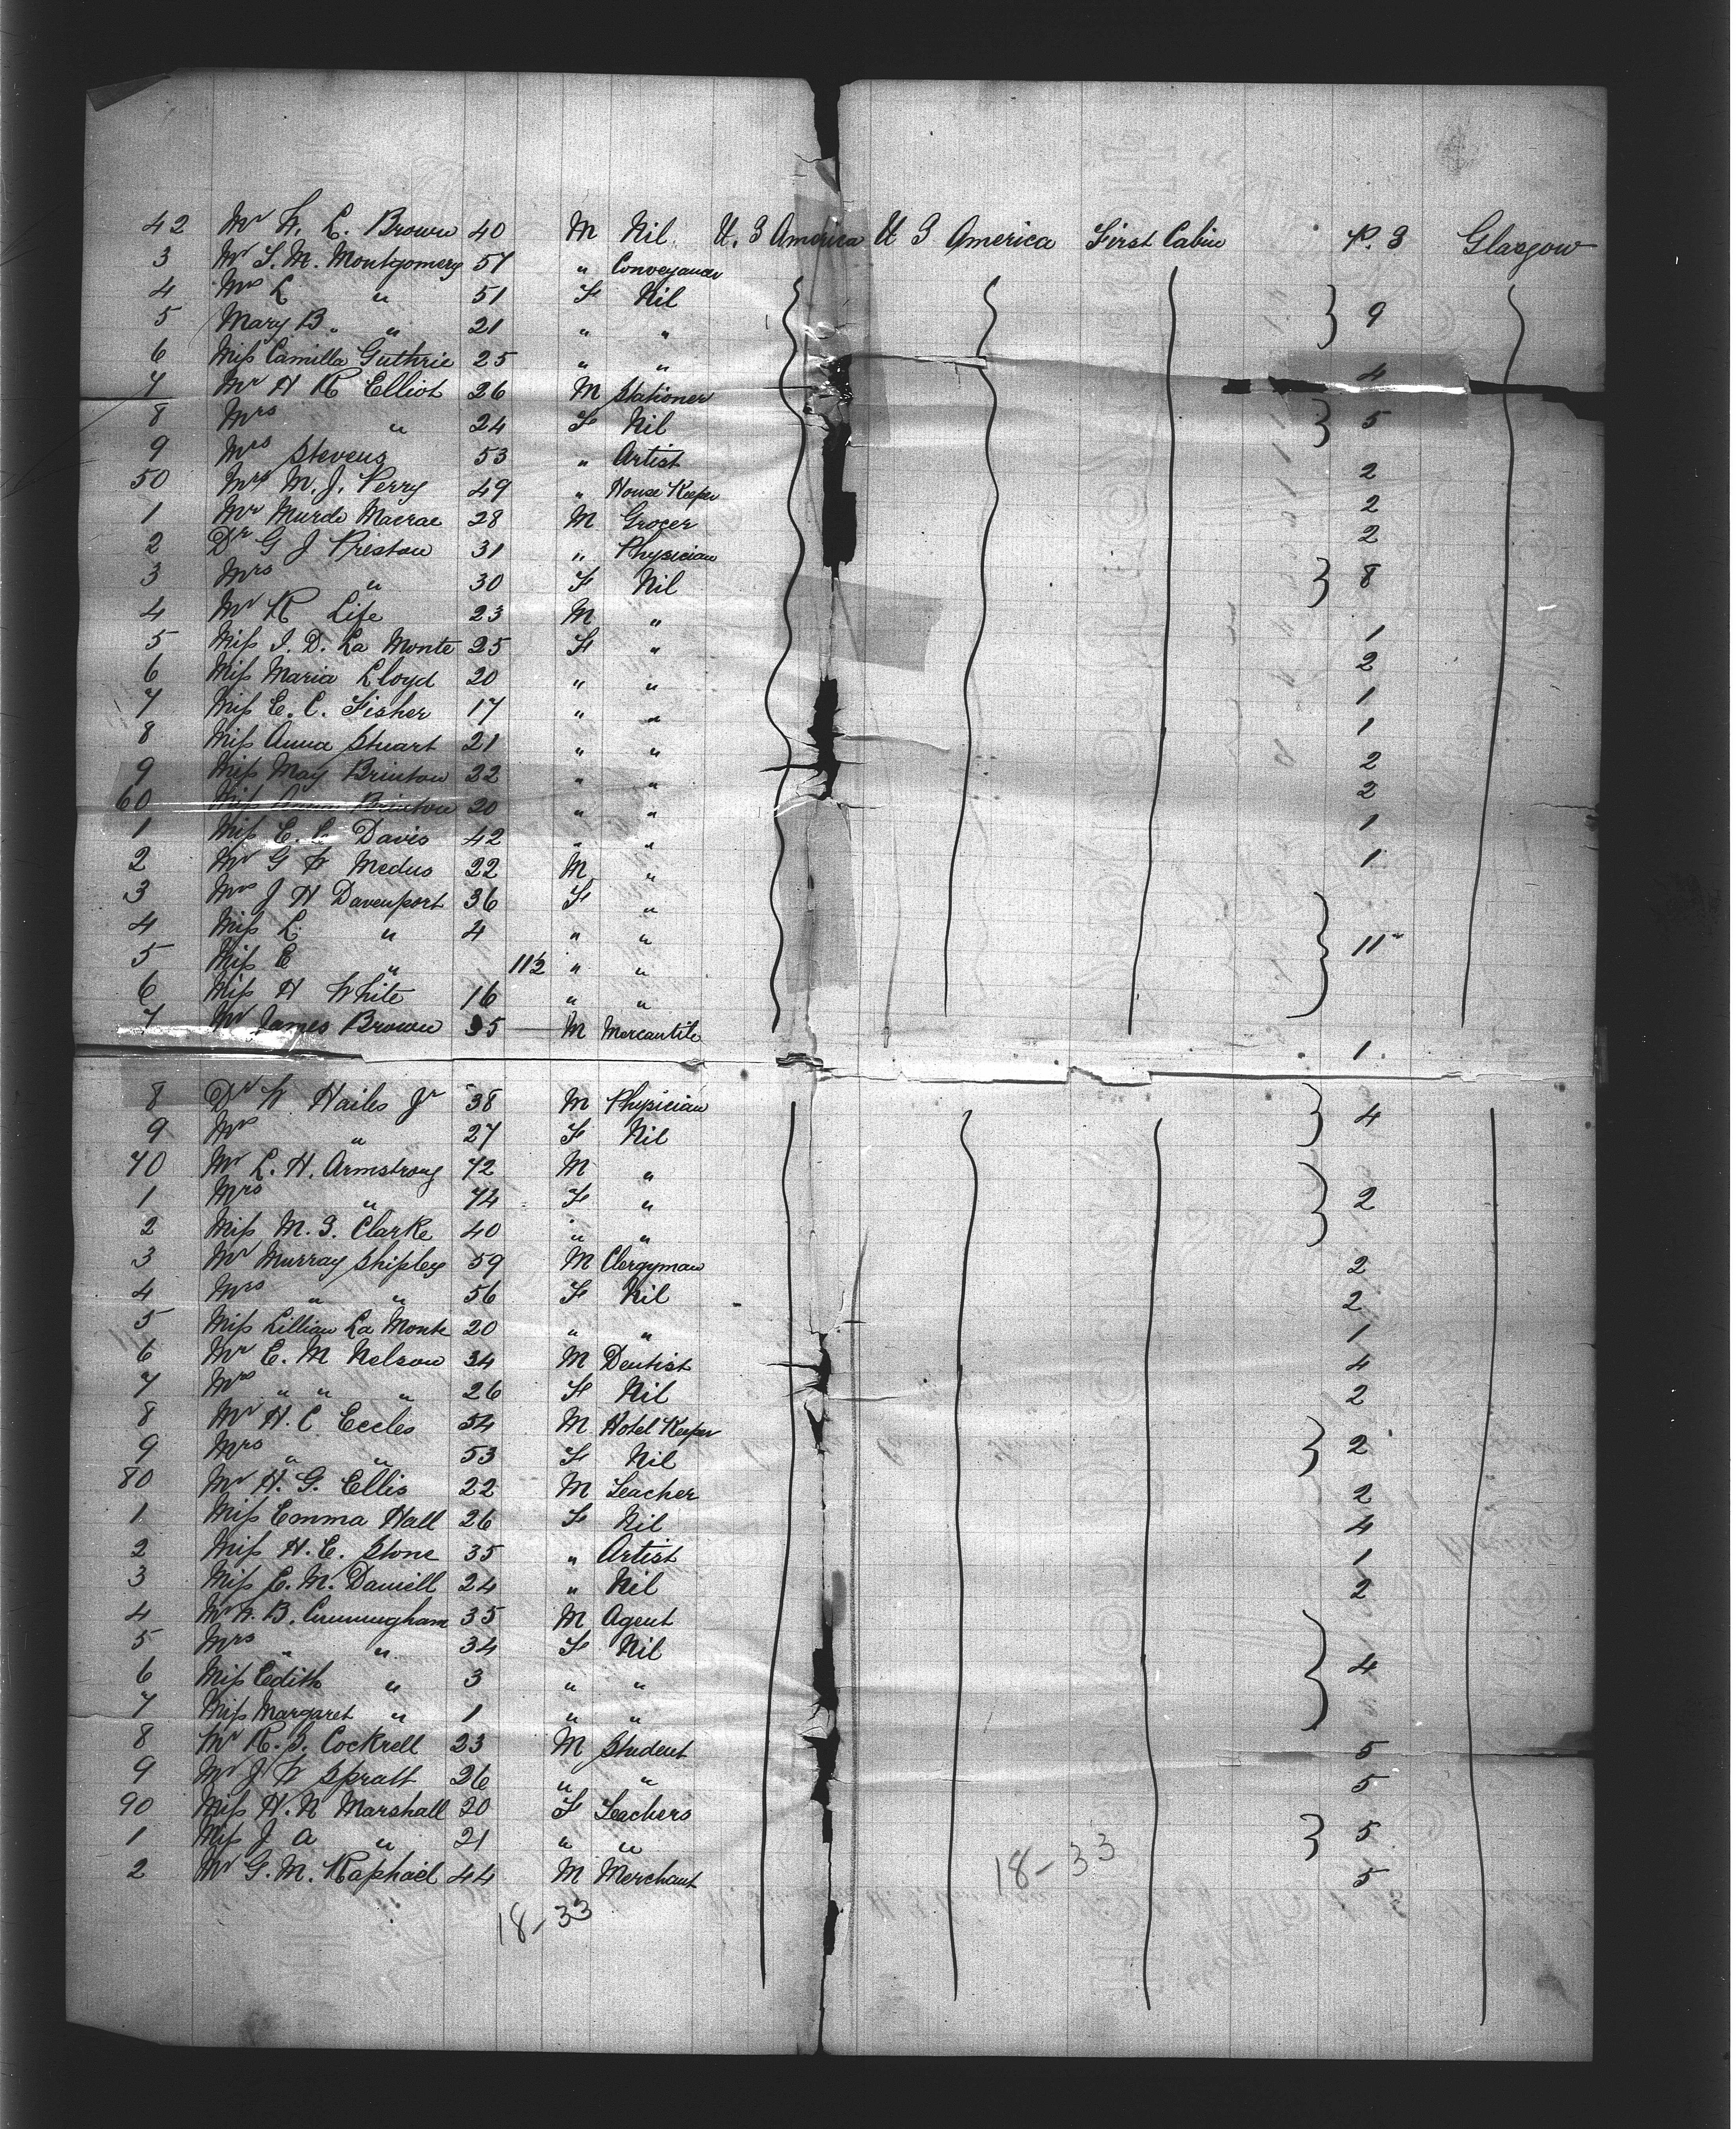 42 Mr W. L. Brown 40 M Nil U. S America U S America First Cabin P. S Glasgow
3 Mr S. M. Montgomery 57 " Conveyancer
4 Mrs L " 51 F Nil
5 Mary B. " 21 " " 9
6 Miss Camilla Guthrie 25 " " 4
7 Mr H R Elliot 26 M Stationer
8 Mrs " 24 F Nil 5
9 Mrs Stevens 53 " Artist 2
50 Mrs M. J. Perry 49 " House Keeper 2
1 Mr Murdo Macrae 28 M Grocer 2
2 Dr G J Preston 31 " Physician
3 Mrs " 30 F Nil 8
4 Mr R Life 23 M " 1
5 Miss I. D. La Monte 25 F " 2
6 Miss Maria Lloyd 20 " " 1
7 Miss E. C. Fisher 17 " " 1
8 Miss Anna Stuart 21 " " 2
9 Miss May Brinton 22 " " 2
60 Miss Brinton 20 " " 1
1 Miss E. Davis 42 " " 1
2 Mr G W Medus 22 M "
3 Mrs J H Davenport 36 F "
4 Miss L. " 4 " " 11
5 Miss E " 11½ " "
6 Miss H White 16 " "
7 Mr James Brown 35 M Mercantile 1
8 Dr W Hailes Jr 38 M Physician 4
9 Mrs " 27 F Nil
70 Mr L. H. Armstrong 72 M "
1 Mrs " 74 F " 2
2 Miss M. S. Clarke 40 " "
3 Mr Murray Shipley 59 M Clergyman 2
4 Mrs " " 56 F Nil 2
5 Miss Lillian La Monte 20 " " 1
6 Mr E. M Nelson 34 M Dentist 4
7 Mrs " " " 26 F Nil 2
8 Mr H. C Eccles 54 M Hotel Keeper
9 Mrs " " 53 F Nil 2
80 Mr H. G. Ellis 22 M Teacher 2
1 Miss Emma Hall 26 F Nil 4
2 Miss H. E. Stone 35 " Artist 1
3 Miss E. M. Daniell 24 " Nil 2
4 Mr W. B. Cunningham 35 M Agent
5 Mrs " " 34 F Nil 4
6 Miss Edith " 3 " "
7 Miss Margaret " 1 " "
8 Mr R. S. Cockrell 23 M Student 5
9 Mr J W Spratt 26 " " 5
90 Miss H. N Marshall 20 F Teachers
1 Miss J A " 21 " " 5
2 Mr G. M. Raphael 44 M Merchant 5
18-33
18-33